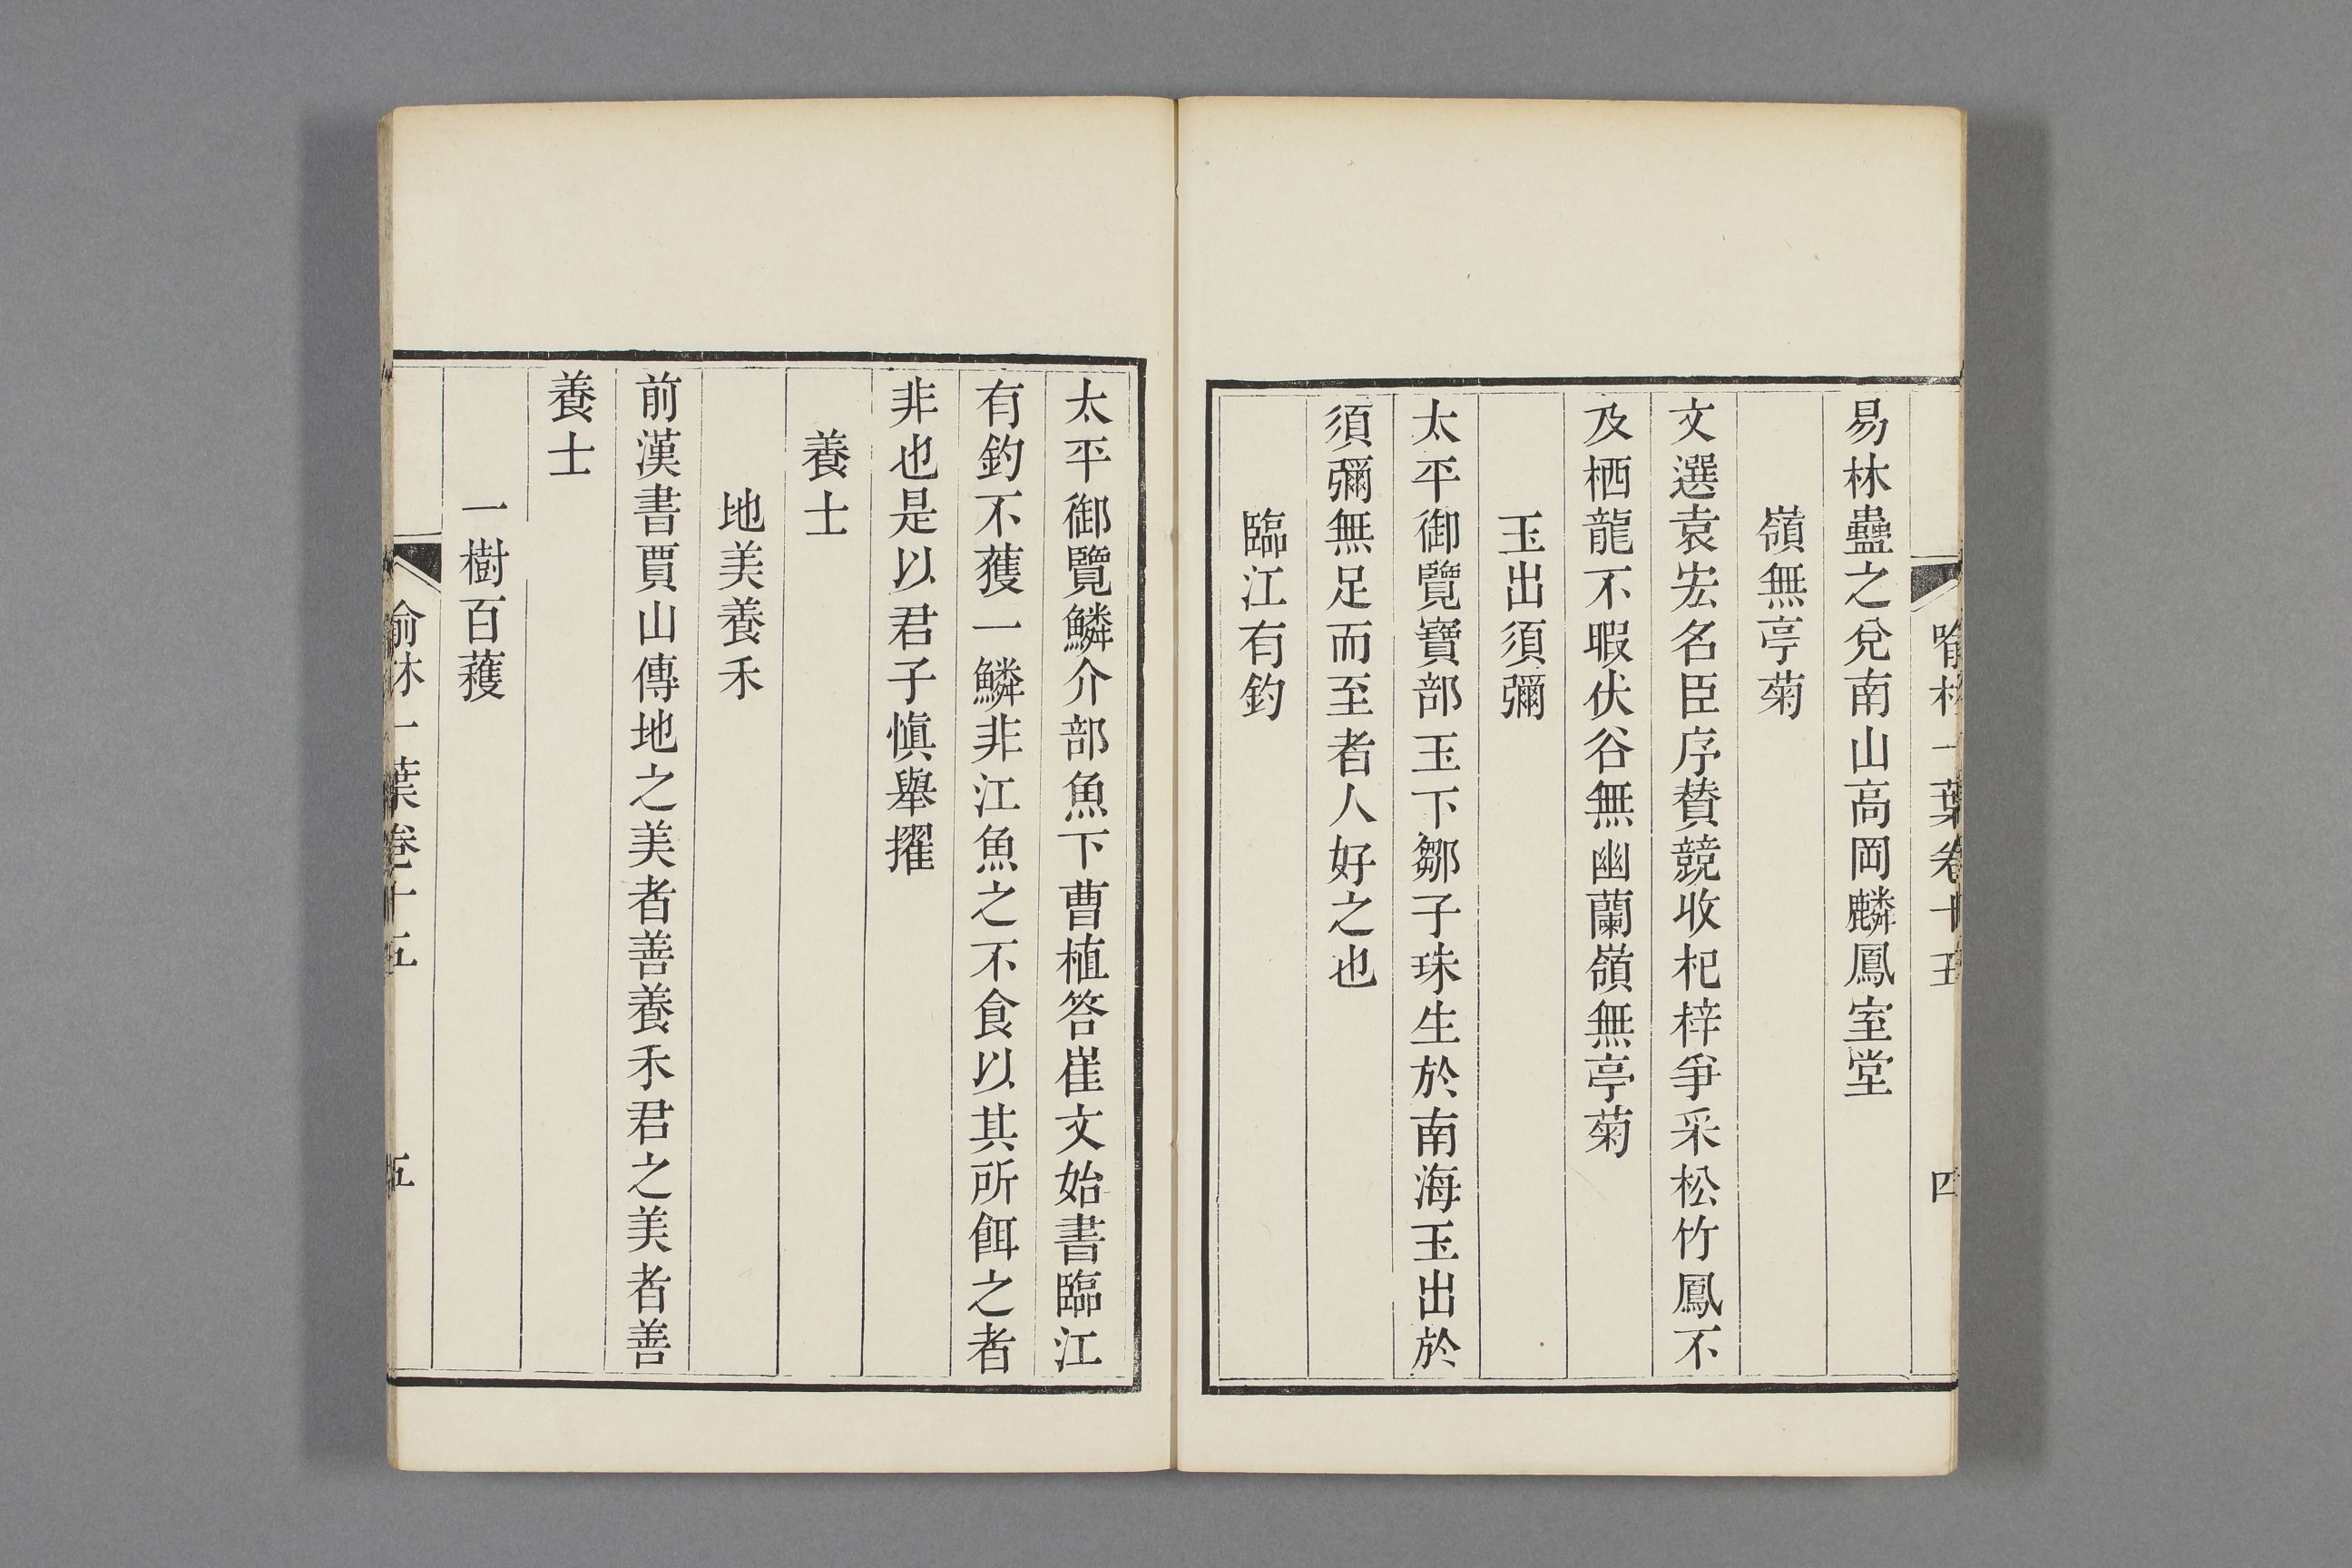 喻林一葉卷十五 四
易林蠱之兌南山高岡麟鳳室堂
嶺無亭菊
文選袁宏名臣序贊競收杞梓爭采松竹鳳不
及栖龍不暇伏谷無幽蘭嶺無亭菊
玉出須彌
太平御覽寶部玉下鄒子珠生於南海玉出於
須彌無足而至者人好之也
臨江有釣
太平御覽鱗介部魚下曹植答崔文始書臨江
有釣不獲一鱗非江魚之不食以其所餌之者
非也是以君子愼舉擢
養士
地美養禾
前漢書賈山傳地之美者善養禾君之美者善
養士
一樹百穫
喻林一葉卷十五 五